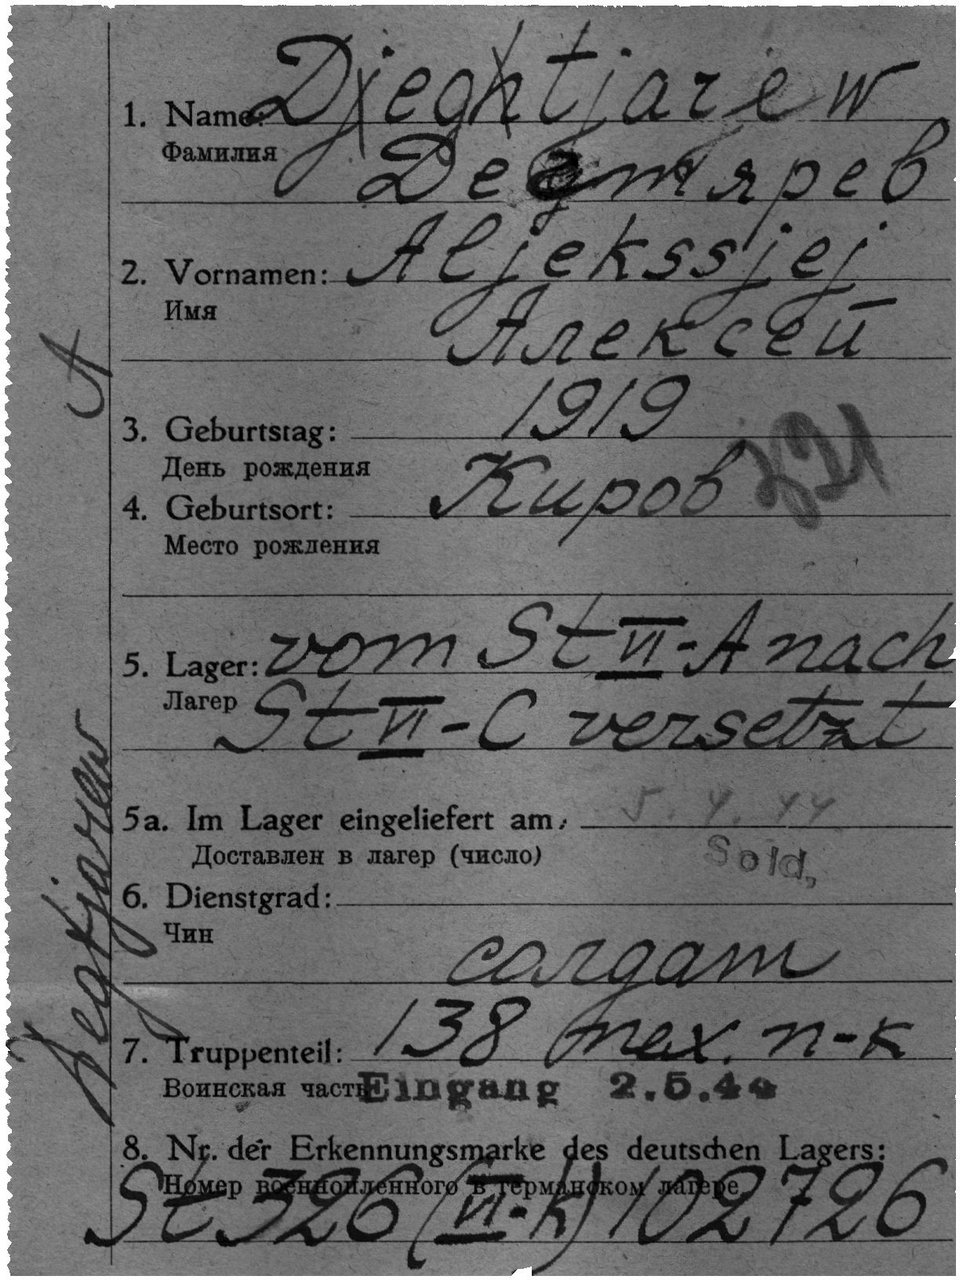 1. Name: Djeghtjarew
Фамилия
Дегтярев
2. Vornamen: Aljekssjej
Имя
Алексей
A
3. Geburtstag: 1919
День рождения
4. Geburtsort: Киров
Место рождения
5. Lager: vom St VI-A nach
Лагер St VI-C versetzt
5a. Im Lager eingeliefert am: 5.4.44
Доставлен в лагер (число) Sold,
6. Dienstgrad:
Чин
солдат
Degtjarew
7. Truppenteil: 138 мех. п-к
Воинская часть Eingang 2.5.44
8. Nr. der Erkennungsmarke des deutschen Lagers:
Номер военнопленного в германском лагере
St 326 (VI-K) 102726